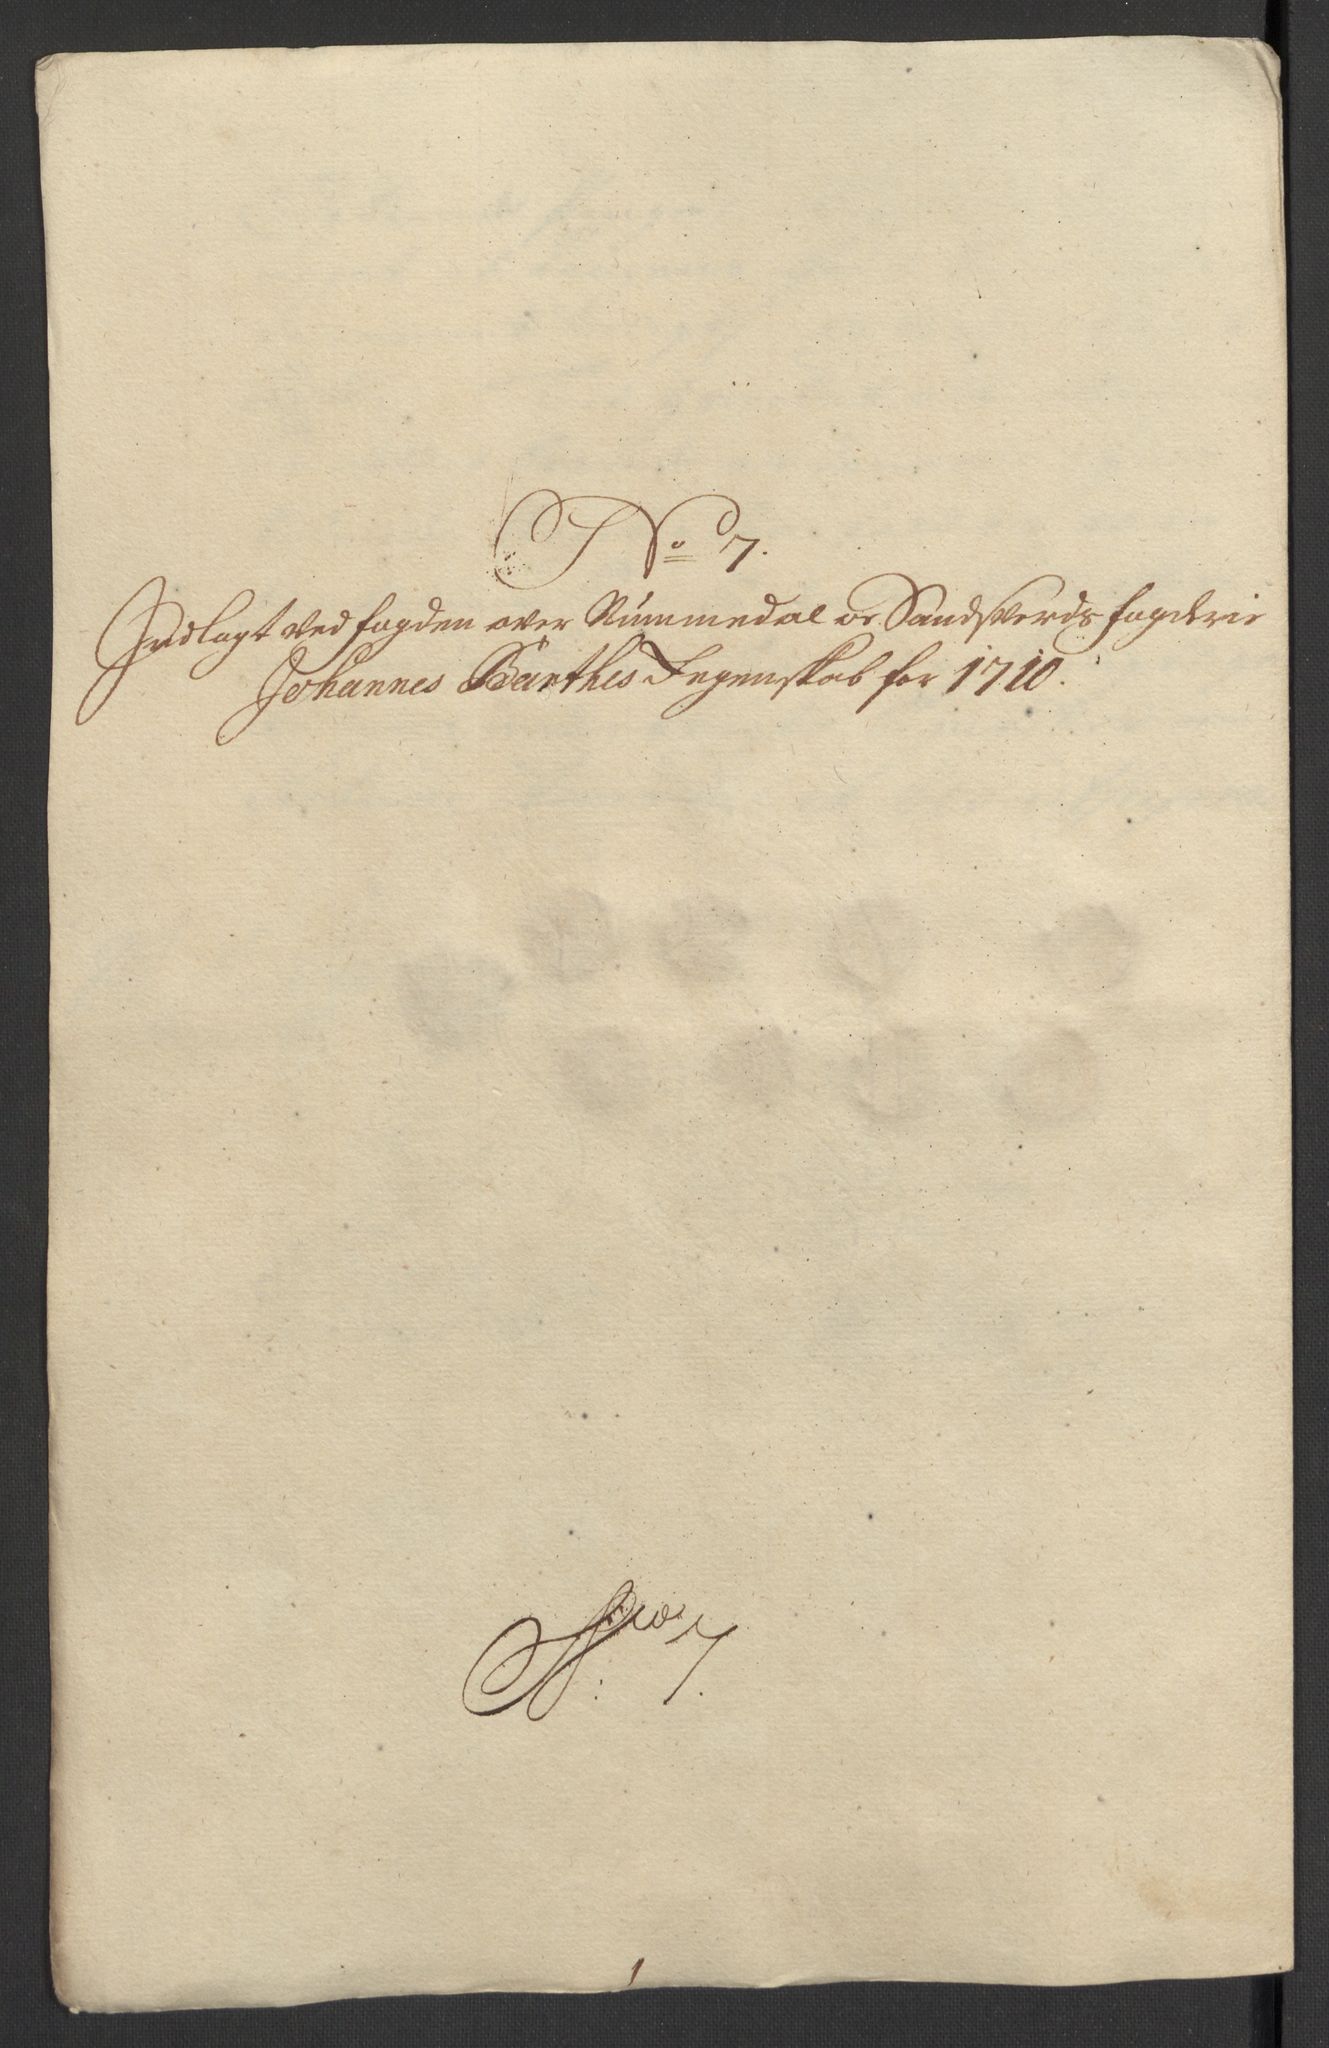 No 7.
Indlagt ved fogden over Nummedal oc Sandsverds fogderie
Johannes Barthes Regenskab for 1710.
No: 7.
1